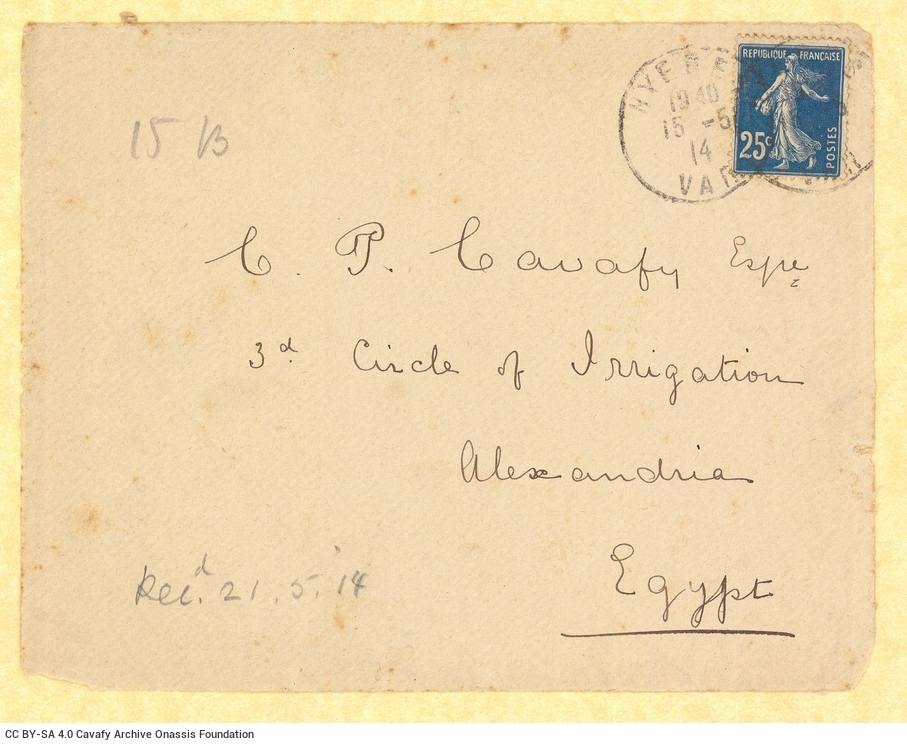 15 B
HYERES
19 40
15 -5
14
VAR
REPUBLIQUE FRANÇAISE
25c
POSTES
C. P. Cavafy Esqre
3d Circle of Irrigation
Alexandria
Egypt
Recd. 21.5.14
CC BY-SA 4.0 Cavafy Archive Onassis Foundation